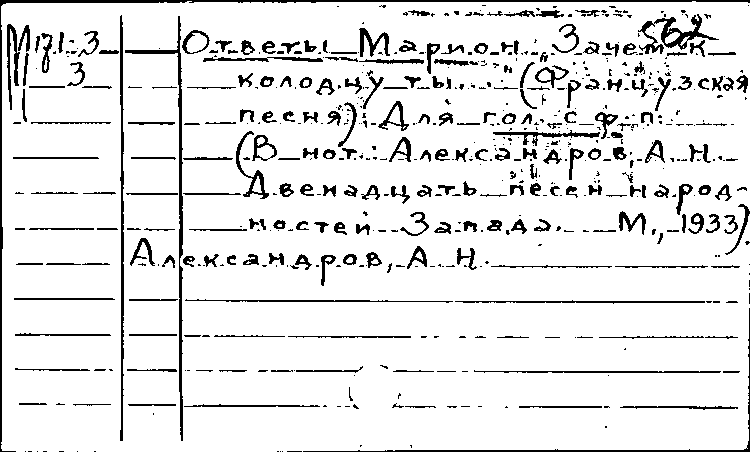 562
М 171-3 Ответы Марион: "Зачем к
3 колодцу ты..." (Французская
песня): Для гол. с ф-п.
(В нот.: Александров, А. Н.
Двенадцать песен народ-
ностей Запада. М., 1933).
Александров, А. Н.